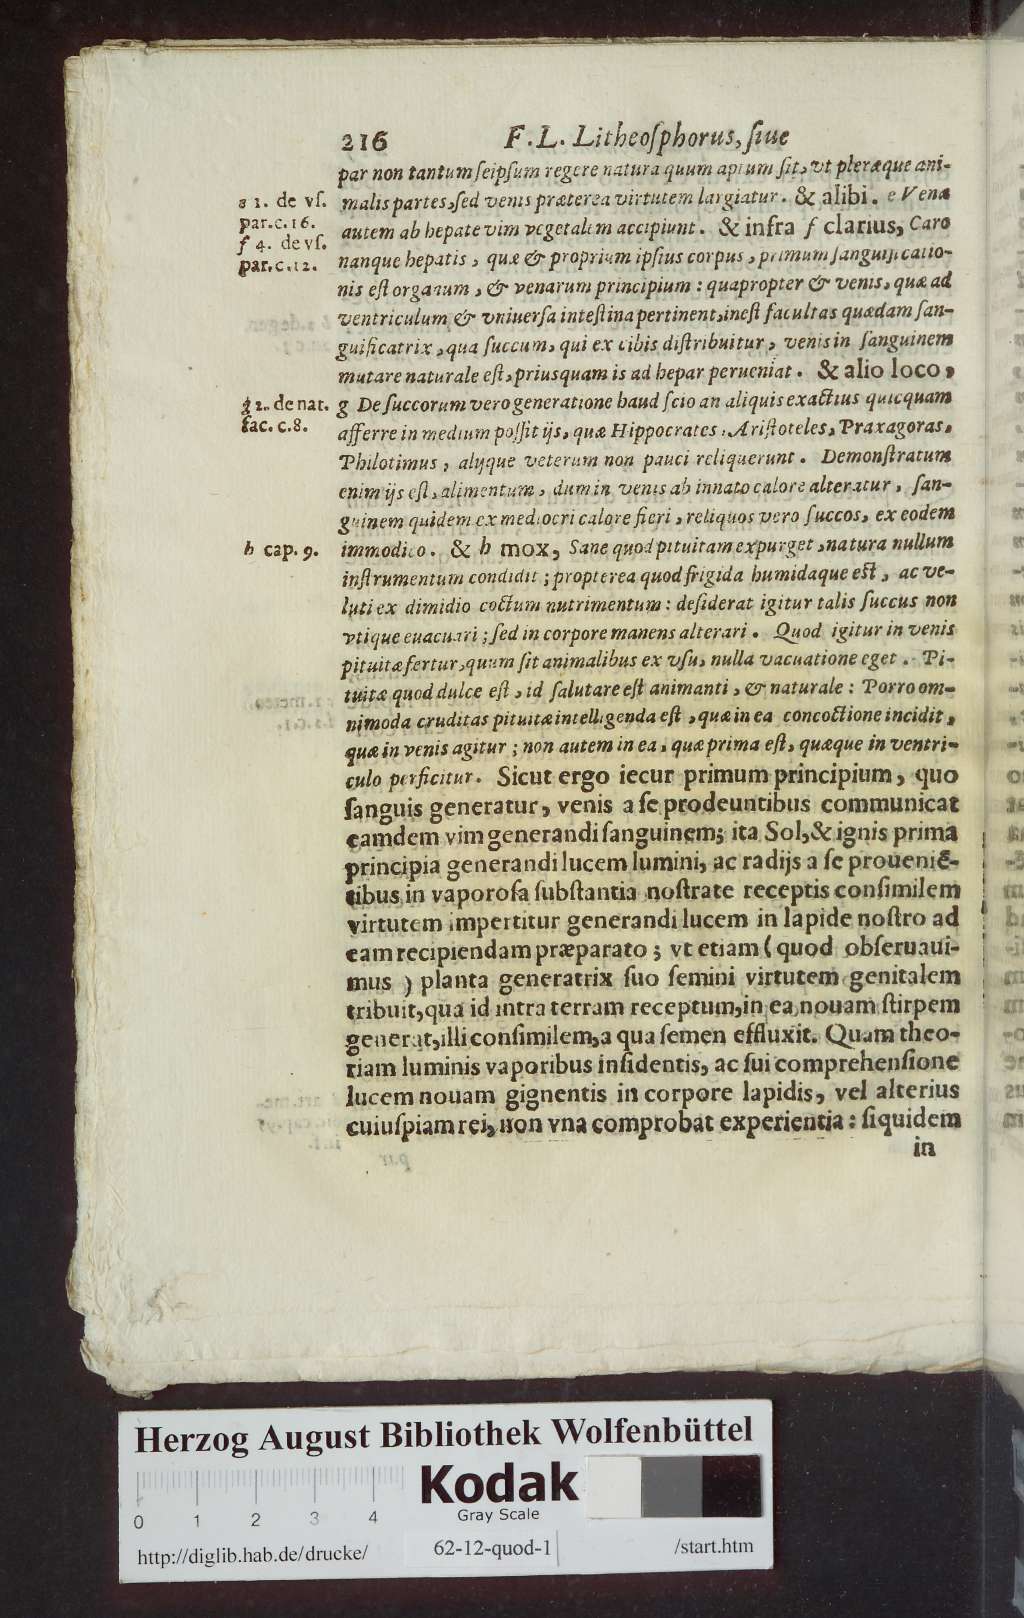 216 F. L. Litheoſphorus, ſiue
par non tantum ſeipſum regere natura quum aptum ſit, vt pleræque ani-
malis partes, ſed venis præterea virtutem largiatur. & alibi. e Venæ
autem ab hepate vim vegetalem accipiunt. & infra f clarius, Caro
nanque hepatis, quæ & proprium ipſius corpus, primum ſanguificatio-
nis eſt organum, & venarum principium: quapropter & venis, quæ ad
ventriculum & vniuerſa inteſtina pertinent, ineſt facultas quædam ſan-
guificatrix, qua ſuccum, qui ex cibis diſtribuitur, venis in ſanguinem
mutare naturale eſt, priuſquam is ad hepar perueniat. & alio loco,
g De ſuccorum vero generatione haud ſcio an aliquis exactius quicquam
afferre in medium poſſit ijs, quæ Hippocrates, Ariſtoteles, Praxagoras,
Philotimus, alijque veterum non pauci reliquerunt. Demonſtratum
enim ijs eſt, alimentum, dum in venis ab innato calore alteratur, ſan-
guinem quidem ex mediocri calore fieri, reliquos vero ſuccos, ex eodem
immodico. & h mox, Sane quod pituitam expurget, natura nullum
inſtrumentum condidit; propterea quod frigida humidaque eſt, ac ve-
luti ex dimidio coctum nutrimentum: deſiderat igitur talis ſuccus non
vtique euacuari; ſed in corpore manens alterari. Quod igitur in venis
pituitæ fertur, quum ſit animalibus ex vſu, nulla vacuatione eget. Pi-
tuitæ quod dulce eſt, id ſalutare eſt animanti, & naturale: Porro om-
nimoda cruditas pituitæ intelligenda eſt, quæ in ea concoctione incidit,
quæ in venis agitur; non autem in ea, quæ prima eſt, quæque in ventri-
culo perficitur. Sicut ergo iecur primum principium, quo
ſanguis generatur, venis a ſe prodeuntibus communicat
eamdem vim generandi ſanguinem; ita Sol, & ignis prima
principia generandi lucem lumini, ac radijs a ſe prouenië-
tibus in vaporoſa ſubſtantia noſtrate receptis conſimilem
virtutem impertitur generandi lucem in lapide noſtro ad
eam recipiendam præparato; vt etiam (quod obſeruaui-
mus) planta generatrix ſuo ſemini virtutem genitalem
tribuit, qua id intra terram receptum, in ea nouam ſtirpem
generat, illi conſimilem, a qua ſemen effluxit. Quam theo-
riam luminis vaporibus inſidentis, ac ſui comprehenſione
lucem nouam gignentis in corpore lapidis, vel alterius
cuiuſpiam rei, non vna comprobat experientia: ſiquidem
in
e 1. de vſ.
par. c. 16.
f 4. de vſ.
par. c. 12.
g 2. de nat.
fac. c. 8.
h cap. 9.
Herzog August Bibliothek Wolfenbüttel
Kodak
Gray Scale
0 1 2 3 4
http://diglib.hab.de/drucke/ 62-12-quod-1 /start.htm